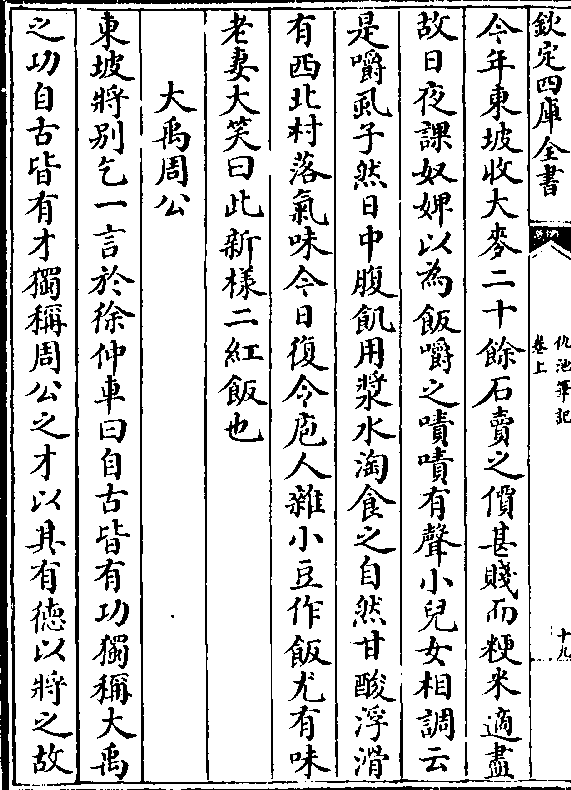 欽定四庫全書
仇池筆記
卷上
十九
今年東坡收大麥二十餘石賣之價甚賤而粳米適盡
故日夜課奴婢以為飯嚼之嘖嘖有聲小兒女相調云
是嚼虱子然日中腹飢用漿水淘食之自然甘酸浮滑
有西北村落氣味今日復令庖人雜小豆作飯尤有味
老妻大笑曰此新樣二紅飯也
大禹周公
東坡將别乞一言於徐仲車曰自古皆有功獨稱大禹
之功自古皆有才獨稱周公之才以其有徳以將之故